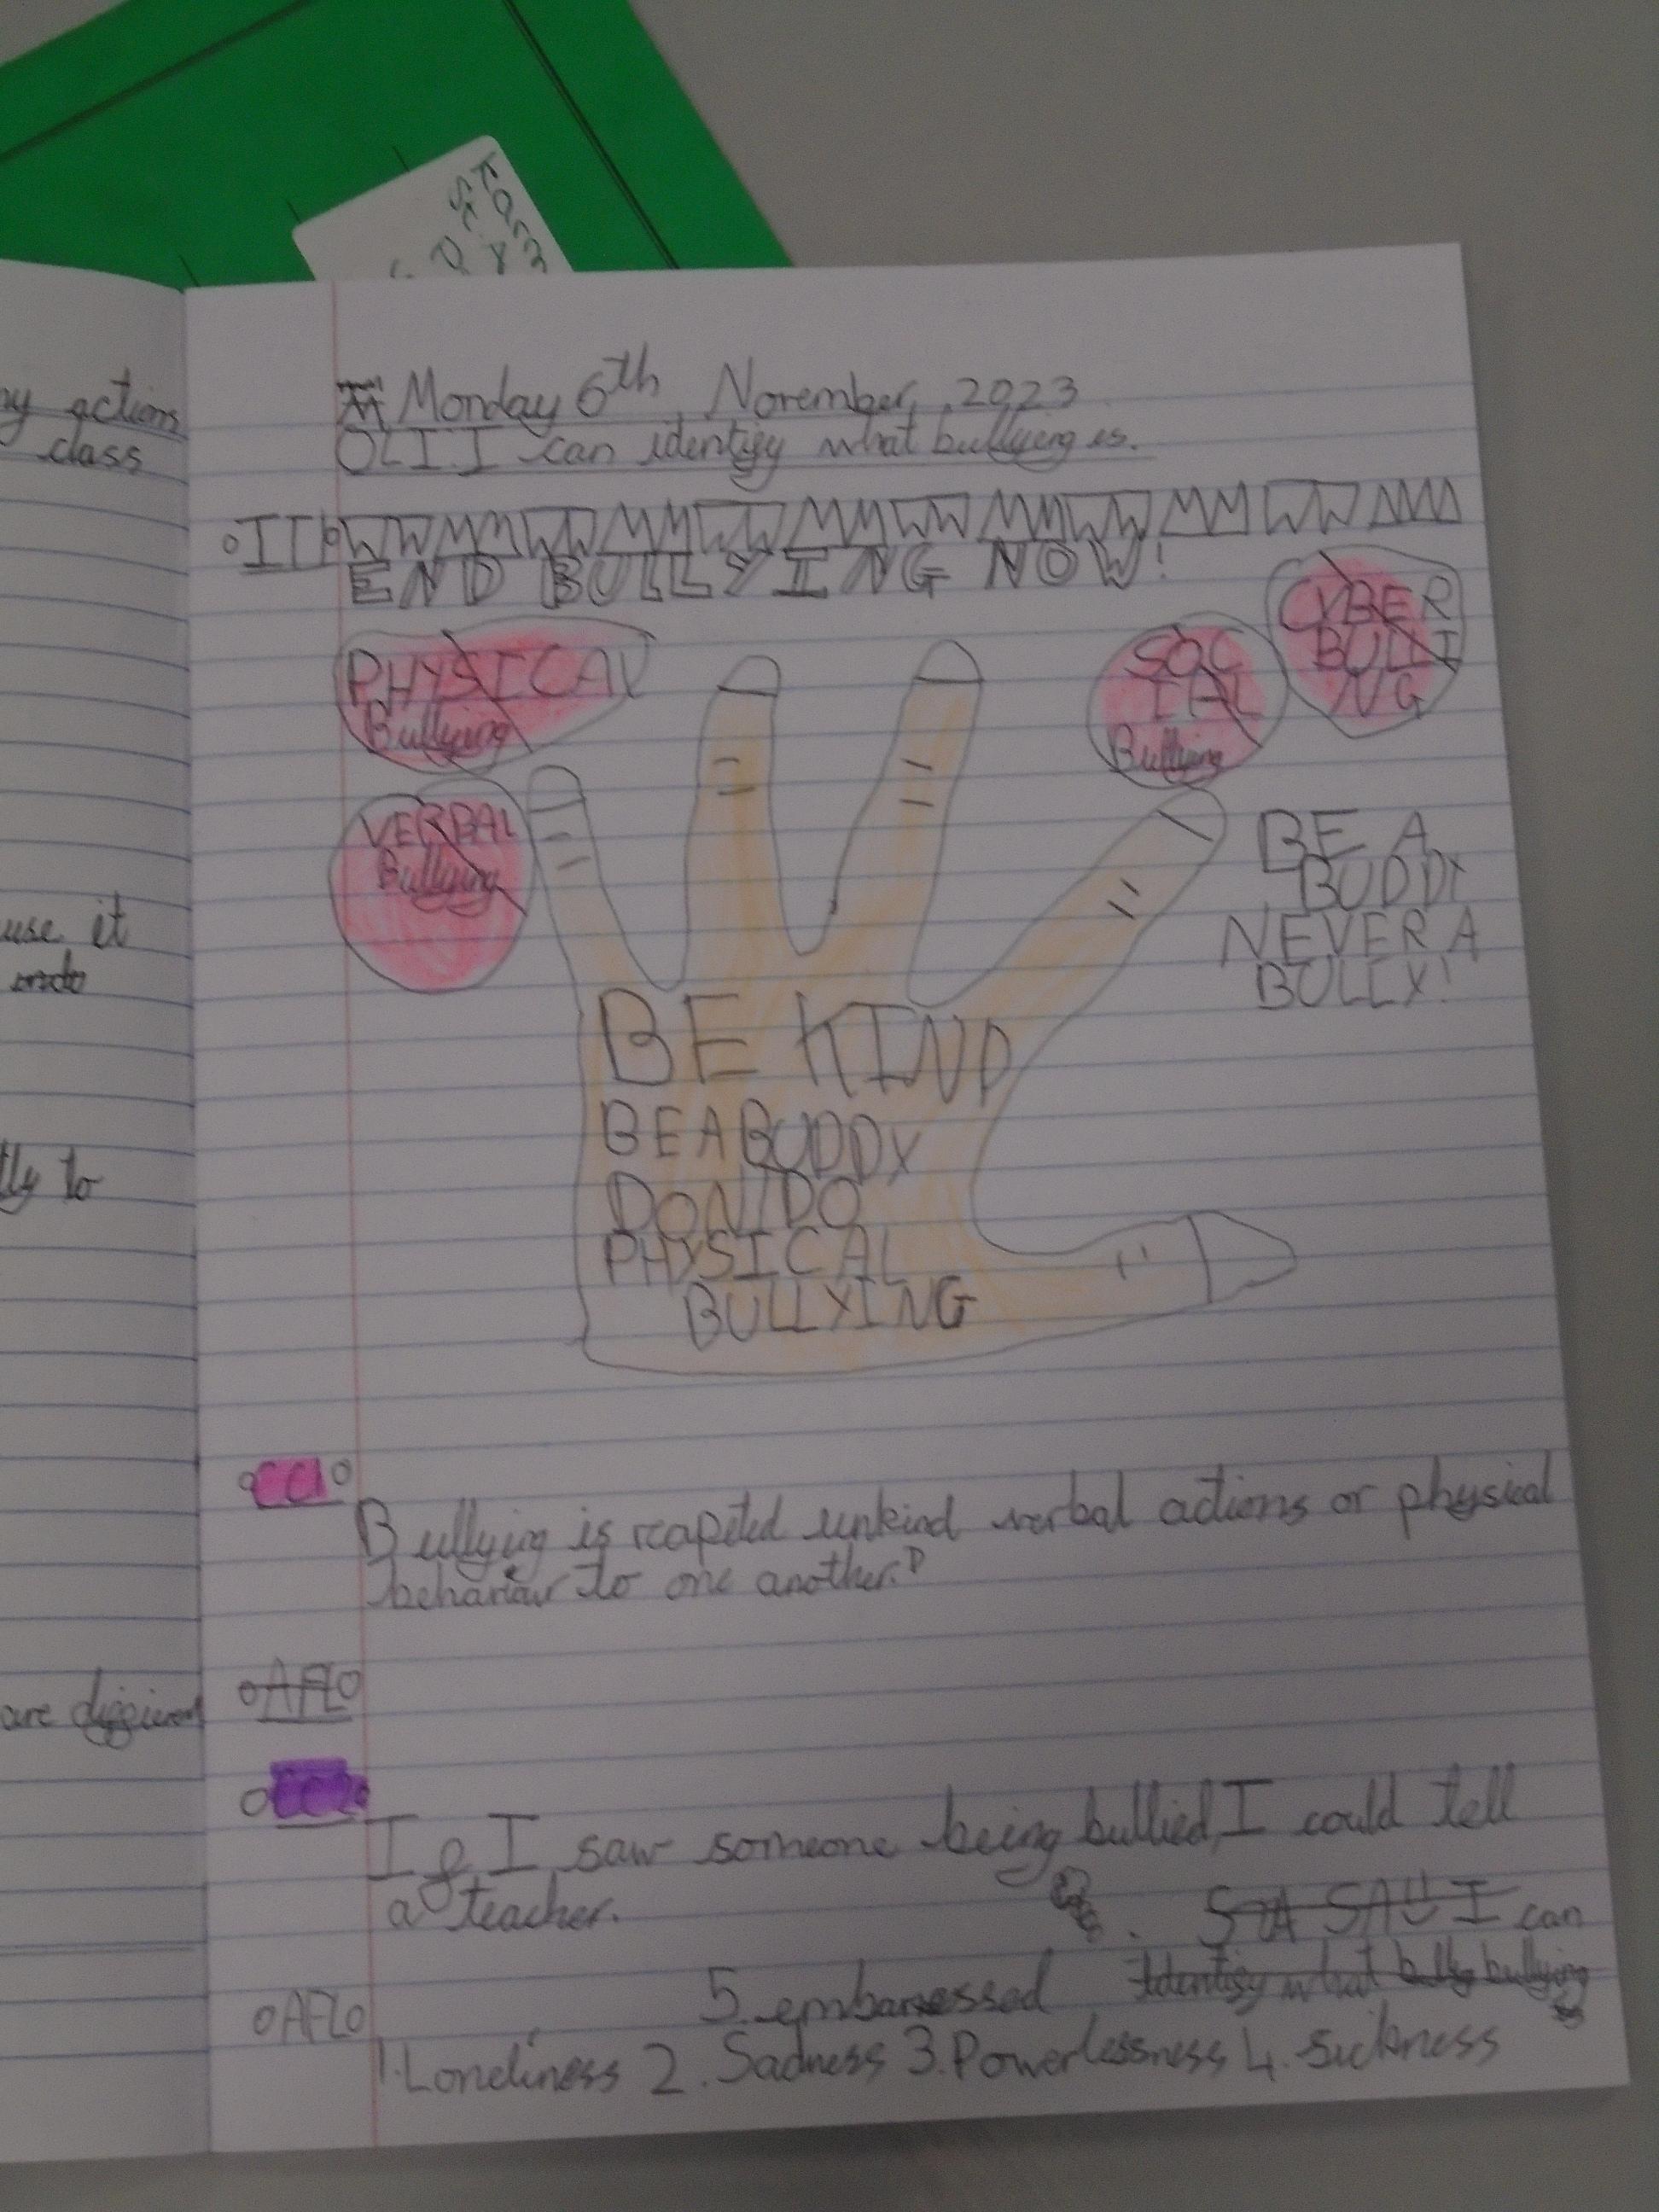 ny actions
class
use it
tly to
are different
Monday 6th, November, 2023
OLI: I can identify what bullying is.
IT
END BULLYING NOW!
PHYSICAL
Bullying
VERBAL
Bullying
SOC
IAL
Bullying
CYBER
BULLI
NG
BE A
BUDDY
NEVER A
BULLY!
BE KIND
BE A BUDDY
DON'T DO
PHYSICAL
BULLYING
CC1
Bullying is reapeted unkind verbal actions or physical
behaviour to one another.
AFL
CC2
If I saw someone being bullied, I could tell
a teacher.
I can
5. embaressed Identify what bully bullying
AFL
1. Loneliness 2. Sadness 3. Powerlessness 4. Sickness